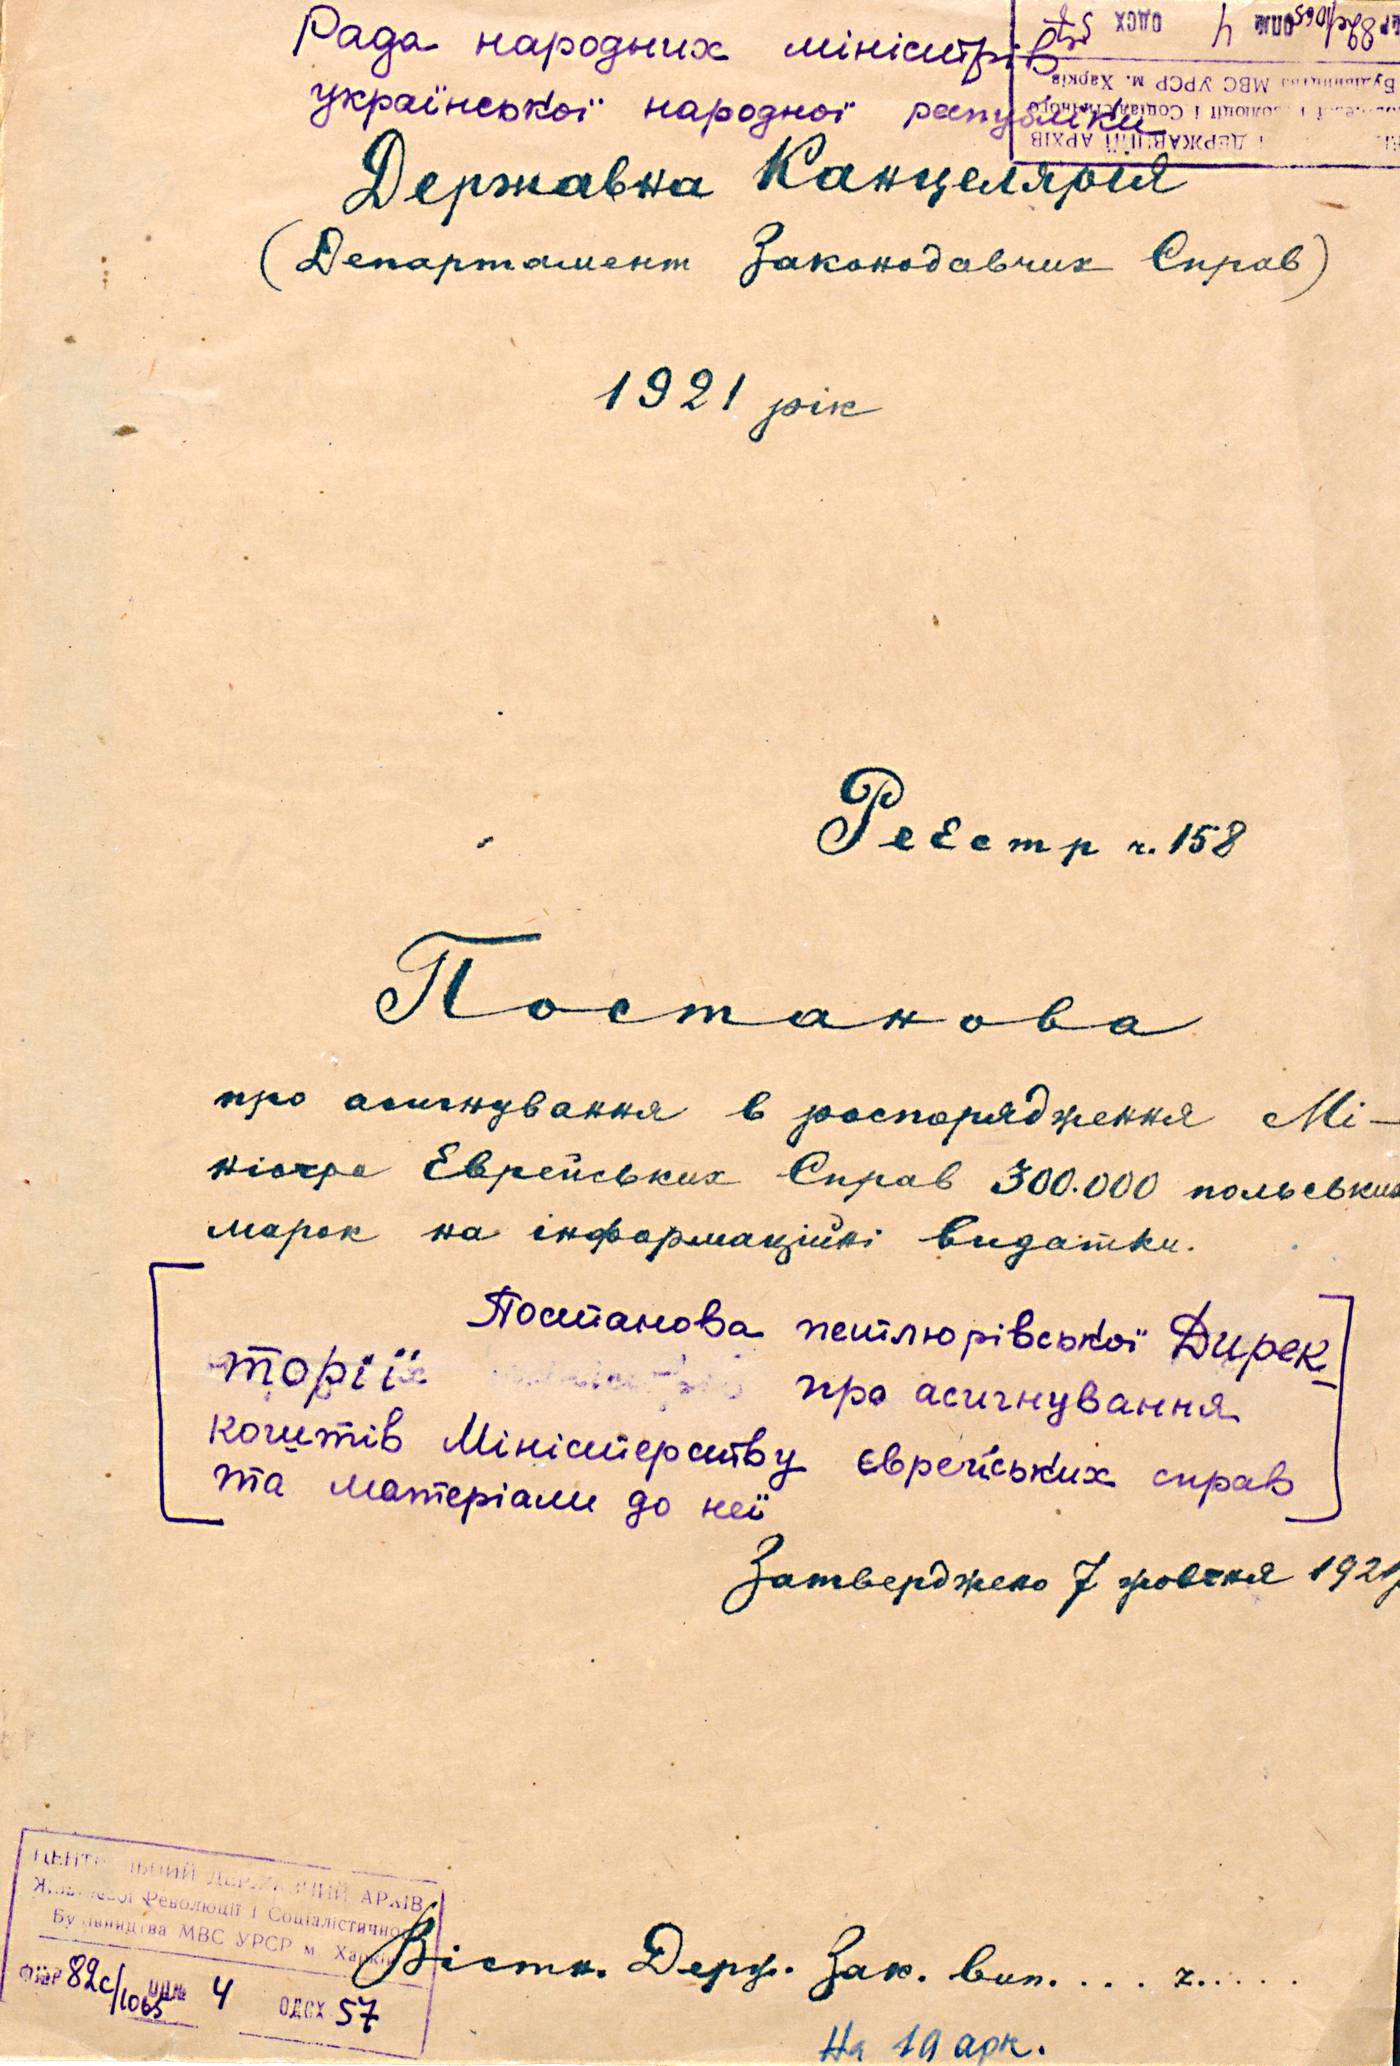 Рада народних міністрів
української народної республіки
Державна Канцелярія
(Департамент Законодавчих Справ)
1921 рік
Реєстр ч. 158
Постанова
про асигнування в роспорядження Мі-
ністра Єврейських Справ 300.000 польських
марок на інформаційні видатки.
Постанова петлюрівської Дирек-
торії про асигнування
коштів Міністерству єврейських справ
та матеріали до неї
Затверджено 7 жовтня 1921р
ЦЕНТРАЛЬНИЙ ДЕРЖАВНИЙ АРХІВ
Жовтневої Революції і Соціалістичного
Будівництва МВС УРСР м. Харків
ФНР 82с/1065 ОП№ 4 ОДСХ 57
Вістн. Держ. Зак. вип. . . . ч. . . . .
На 19 арк.
ДЕРЖАВНИЙ АРХІВ
Революції і Соціалістичного
Будівництва МВС УРСР м. Харків
82с/1065 ОП№ 4 ОДСХ 57